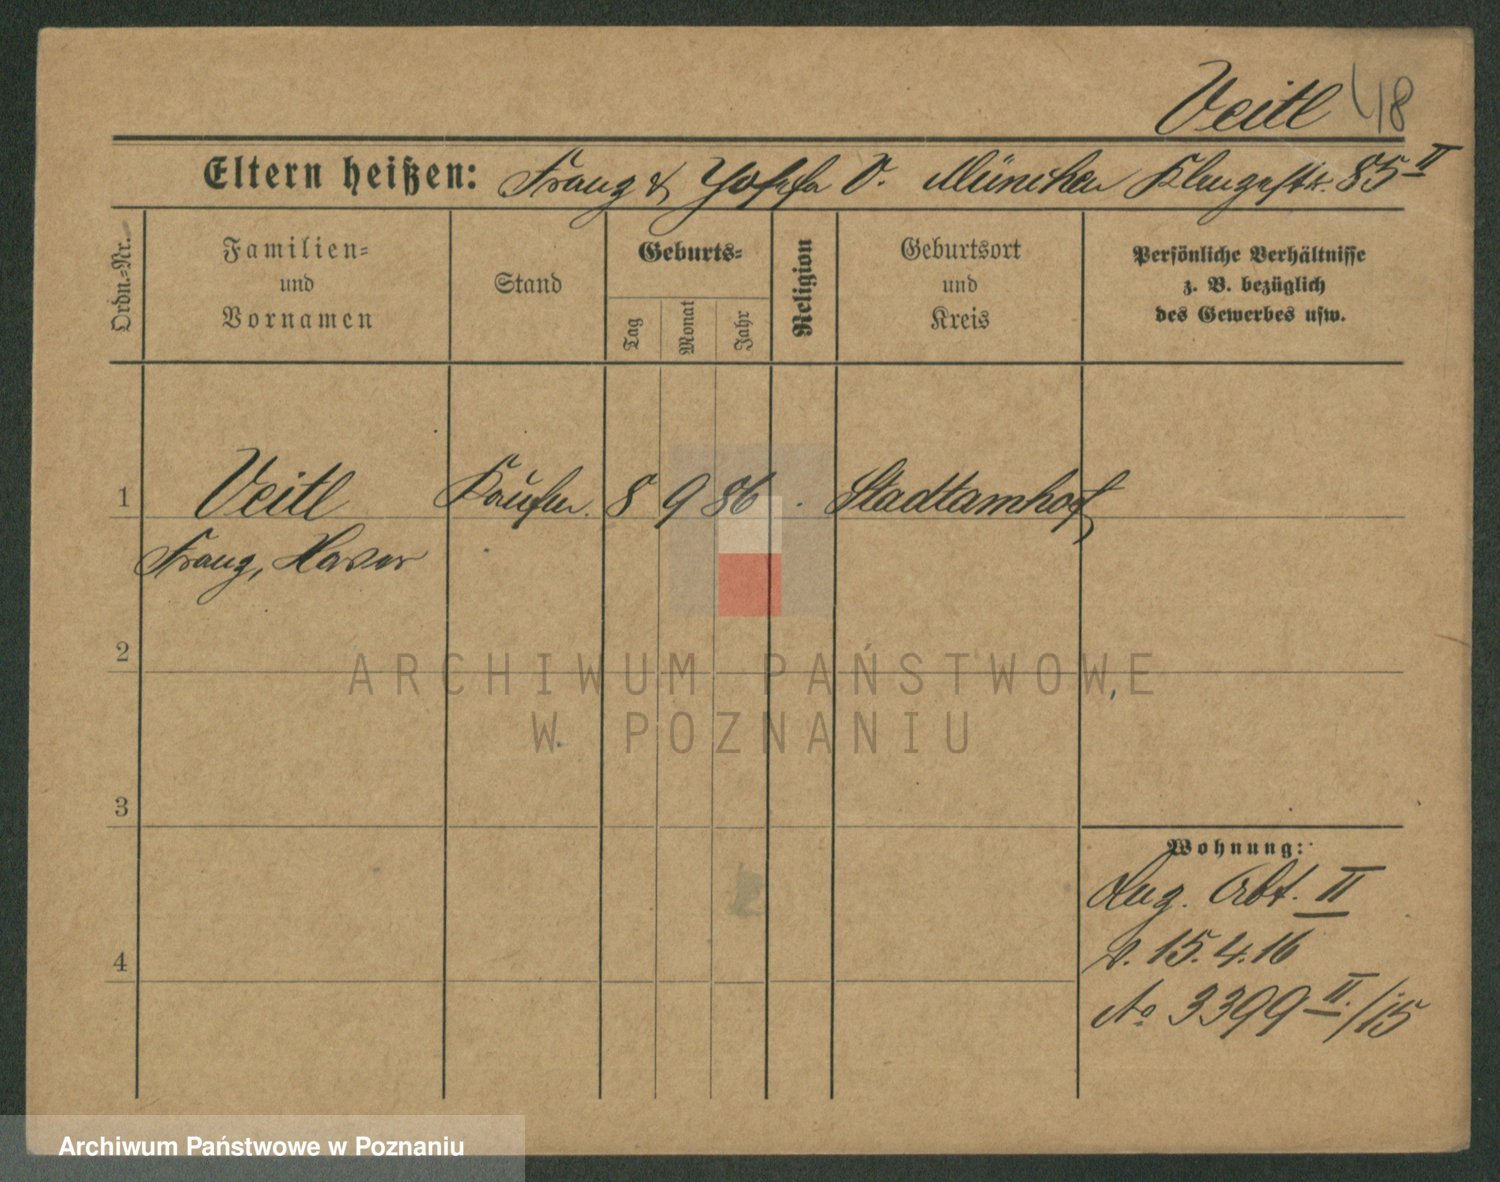 Veitl 18
Eltern heißen: Franz & Josefa V. München Klenzestr. 85 II
Ordn.-Nr.
Familien-
und
Vornamen
Stand
Geburts-
Tag
Monat
Jahr
Religion
Geburtsort
und
Kreis
Persönliche Verhältnisse
z. B. bezüglich
des Gewerbes usw.
1 Veitl Kaufm. 8 9 86 Stadtamhof
Franz, Xaver
2
ARCHIWUM PAŃSTWOWE
W POZNANIU
3
Wohnung:
Zug. Abt. II
v. 15.4.16
4
No 3399 II./15
Archiwum Państwowe w Poznaniu